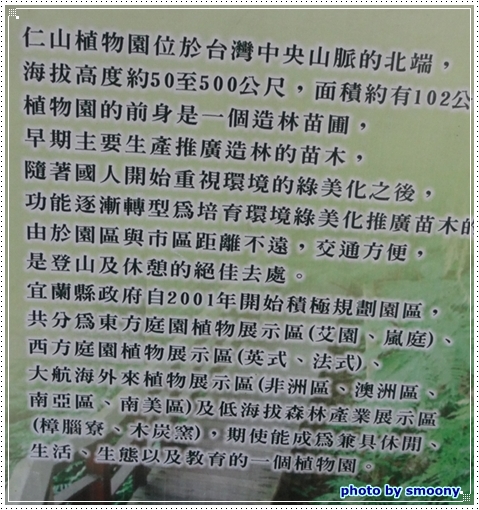 仁山植物園位於台灣中央山脈的北端，
海拔高度約50至500公尺，面積約有102公
植物園的前身是一個造林苗圃，
早期主要生產推廣造林的苗木，
隨著國人開始重視環境的綠美化之後，
功能逐漸轉型爲培育環境綠美化推廣苗木的
由於園區與市區距離不遠，交通方便，
是登山及休憩的絕佳去處。
宜蘭縣政府自2001年開始積極規劃園區，
共分爲東方庭園植物展示區(艾園、嵐庭)、
西方庭園植物展示區(英式、法式)、
大航海外來植物展示區(非洲區、澳洲區、
南亞區、南美區)及低海拔森林產業展示區
(樟腦寮、木炭窯)，期使能成爲兼具休閒、
生活、生態以及教育的一個植物園。
photo by smoony.